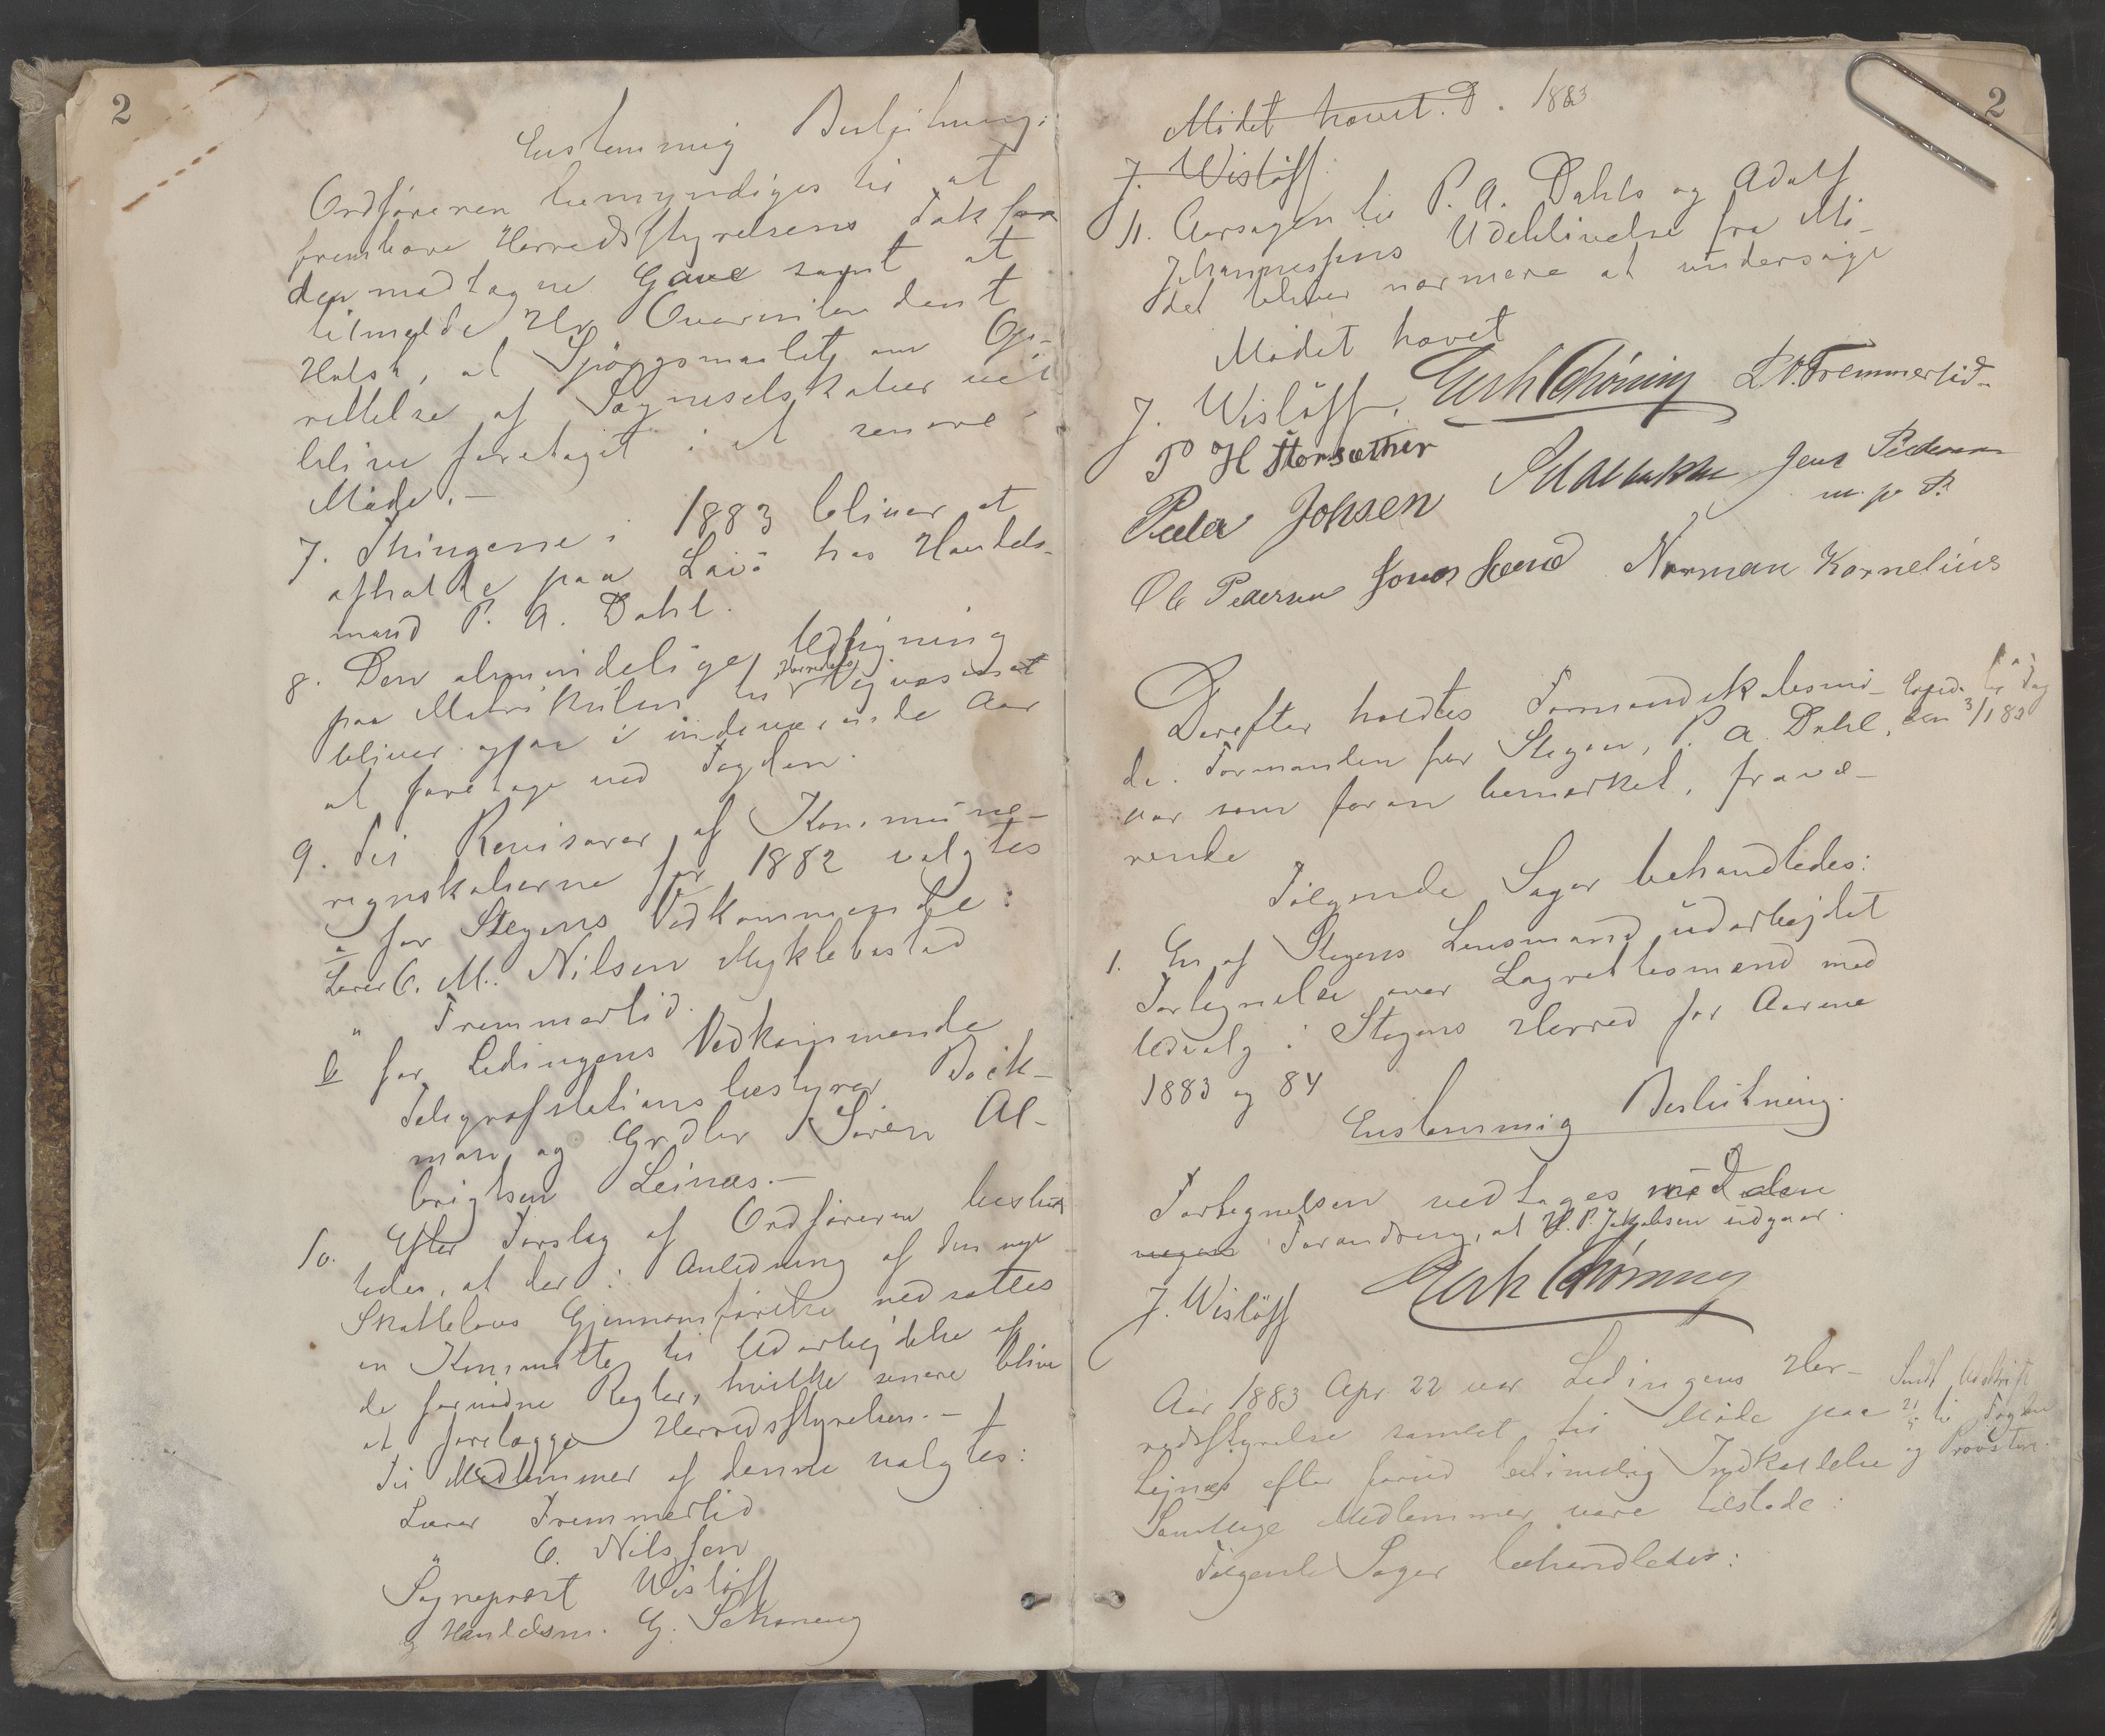 2
Enstemmig Beslutning:
Ordføreren bemyndiges til at
frembære Herredsstyrelsens Tak for
den modtagne Gave samt at
tilmelde Hr. Overintendent
Holst, at Spørgsmaalet om Op-
rettelse af Sogneselskaber vil
blive foretaget i et senere
Møde. —
7. Thingene i 1883 bliver at
afholde paa Laiö hos Handels-
mand P. A. Dahl.
8. Den almindelige Udligning
paa Matrikulen til Herredets Veivæsenet
bliver ogsaa i indeværende Aar
at foretage ved Fogden.
9. Til Revisorer af Kommune-
regnskaberne for 1882 valgtes
a for Stegens Vedkommende:
Lærer C. M. Nilsen Myklebostad
" Fremmerlid.
b for Ledingens Vedkommende
Telegrafstationsbestyrer Dick-
man og Grdbr Søren Al-
brigtsen Leinæs. —
10. Efter Forslag af Ordføreren beslut-
tedes, at der i Anledning af den nye
Skattelovs Gjennemførelse nedsattes
en Kommitte til Udarbejdelse af
de fornødne Regler, hvilke senere bliver
at forelægge Herredsstyrelsen. —
Til Medlemmer af denne valgtes:
Lærer Fremmerlid
" C. Nilssen
Sogneprest Wislöff
og Handelsm. G. Schøning
2
Mödet hævet. D. 1883
J. Wislöff.
11. Aarsagen til P. A. Dahls og Adolf
Johannessens Udeblivelse fra Mö-
det bliver nærmere at undersøge
Mødet hævet
J. Wislöff. Gerh Schøning L. N. Fremmerlid
P H Storsæther
Peder Johsen Jens Pedersen
m. p. P.
Ole Pedersen Jonas Lund Norman Kornelius
Derefter holdtes Formandskabsmö-
de. Formanden for Stegen, P. A. Dahl,
var som foran bemærket, fravæ-
rende
Exped. til Fog
den 3/1 83
Følgende Sager behandledes:
1. En af Stegens Lensmand udarbejdet
Fortegnelse over Lagrettesmænd med
Udvalg i Stegens Herred for Aarene
1883 og 84
Enstemmig Beslutning.
Fortegnelsen vedtages med den
megen Forandring, at H. P. Jakobsen udgaar.
J. Wislöff Gerh Schøning
Aar 1883 Apr. 22 var Ledingens Her-
redsstyrelse samlet til Møde paa
Lejnæs efter forud betimelig Indkaldelse
Samtlige Medlemmer vare tilstede:
Følgende Sager behandledes:
Sendt Udskrift
21/5 til Fogden
og Provsten.